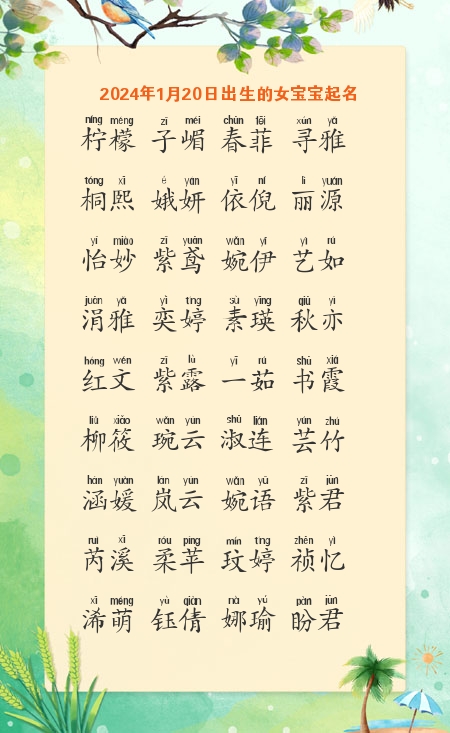 2024年1月20日出生的女宝宝起名
níng méng zǐ méi chūn fēi xún yǎ
柠檬 子嵋 春菲 寻雅
tóng xī é yán yī ní lì yuán
桐熙 娥妍 依倪 丽源
yí miào zǐ yuān wǎn yī yì rú
怡妙 紫鸢 婉伊 艺如
juān yǎ yì tíng sù yīng qiū yì
涓雅 奕婷 素瑛 秋亦
hóng wén zǐ lù yī rú shū xiá
红文 紫露 一茹 书霞
liǔ xiǎo wǎn yún shū lián yún zhú
柳筱 琬云 淑连 芸竹
hán yuàn lán yún wǎn yǔ zǐ jūn
涵媛 岚云 婉语 紫君
ruì xī róu píng mín tíng zhēn yì
芮溪 柔苹 玟婷 祯忆
xī méng yù qiàn nà yú pàn jūn
浠萌 钰倩 娜瑜 盼君